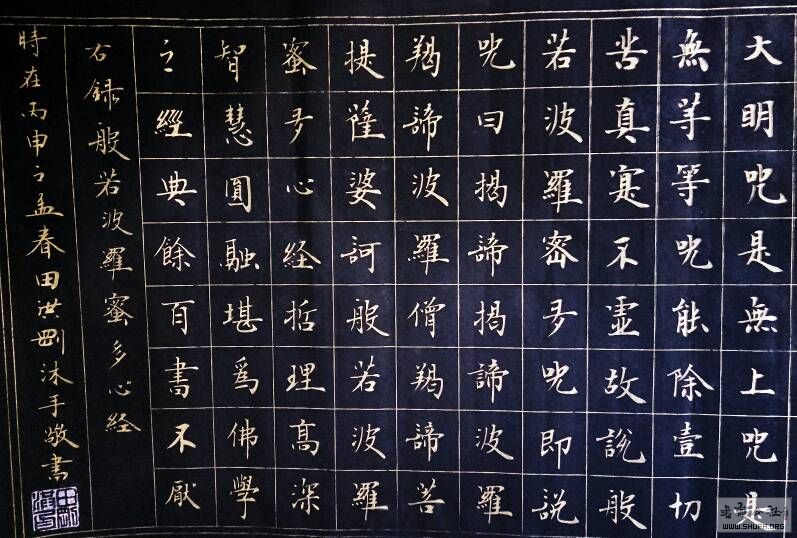 大明咒是無上咒是
無等等咒能除壹切
苦真寔不虛故說般
若波羅密多咒即說
咒曰揭諦揭諦波羅
羯諦波羅僧羯諦菩
提薩婆訶般若波羅
蜜多心経哲理高深
智慧圓融堪爲佛學
之經典餘百書不厭
右録般若波羅蜜多心経
時在丙申之孟春田洪剛沐手敬書
WWW.SHUFA.ORG